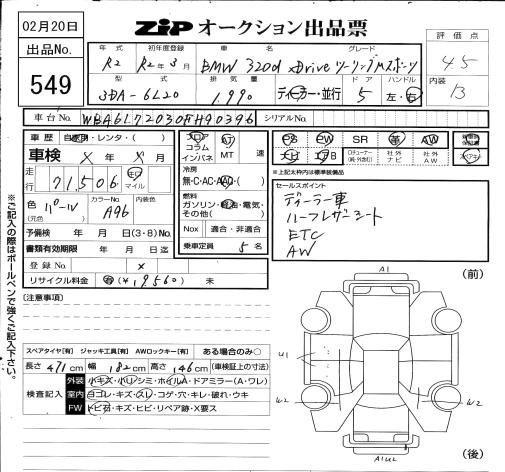 02月20日
ZiP オークション出品票
出品No.
549
評価点
4.5
内装
B
年式 初年度登録 車名 グレード
R2 R2年3月 BMW 320d xDrive ツーリングMスポーツ
型式 排気量 ドア ハンドル
3DA-6L20 1,990 ディーラー・並行 5 左・右
車台No. WBA6L72030FH90396 シリアルNo.
車歴 自家用・レンタ・( )
車検 X年X月
走行 71,506 km マイル
色 (元色) パール カラーNo. A96 内装色
予備検 年 月 日(3・8)No.
書類有効期限 年 月 日迄
登録No. X
リサイクル料金 済(¥19560) 未
フロア コラム インパネ
AT MT 速
冷房
無・C・AC・AAC・( )
燃料
ガソリン・軽油・電気・その他( )
Nox 適合・非適合
乗車定員 5名
PS PW SR 革 AW
ナビ エアB 社外ナビ 社外AW
スペアキー
※上記太枠内は標準装備品
セールスポイント
ディーラー車
ハーフレザーシート
ETC
AW
※ご記入の際はボールペンで強くご記入下さい。
(注意事項)
スペアタイヤ[有] ジャッキ工具[有] AWロックキー[有] ある場合のみ○
長さ 471cm 幅 182cm 高さ 146cm (車検証上の寸法)
検査記入
外装 小キズ・小凹・シミ・ホイルA・ドアミラー(A・ワレ)
室内 ヨゴレ・キズ・スレ・コゲ・穴・キレ・破れ・ウキ
FW トビ石・キズ・ヒビ・リペア跡・X要ス
A1
(前)
U1
W2
W2
A1U2
(後)